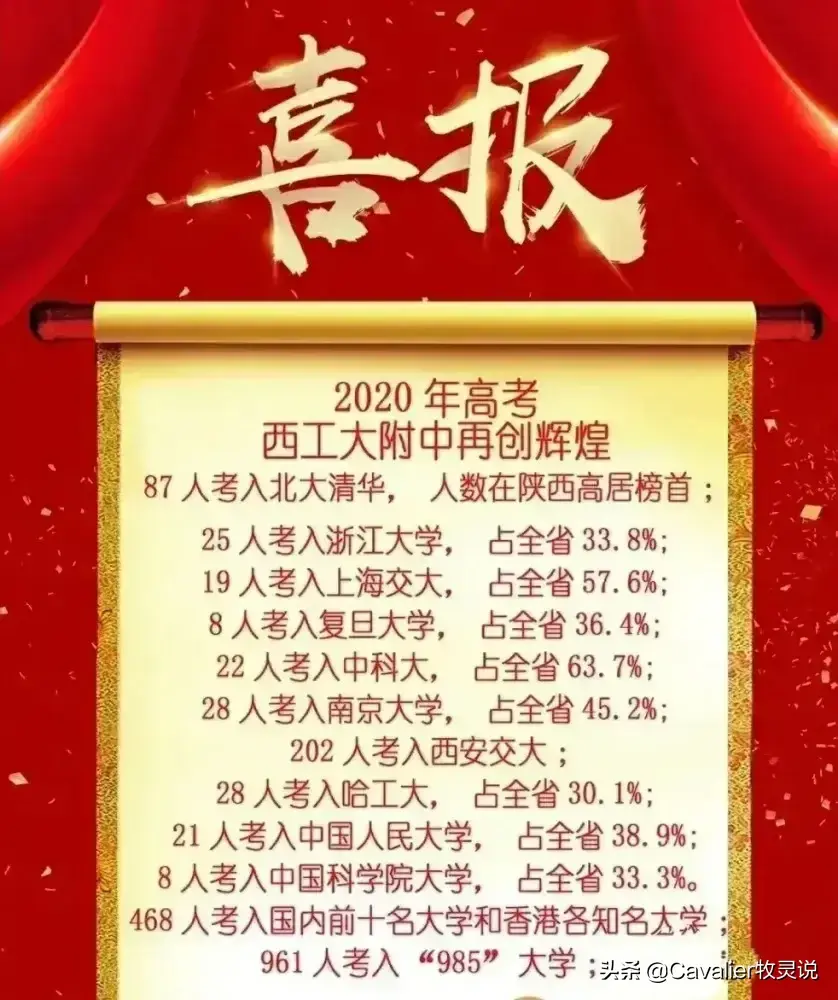 喜报
2020 年高考
西工大附中再创辉煌
87 人考入北大清华， 人数在陕西高居榜首；
25 人考入浙江大学， 占全省 33.8%；
19 人考入上海交大， 占全省 57.6%；
8 人考入复旦大学， 占全省 36.4%；
22 人考入中科大， 占全省 63.7%；
28 人考入南京大学， 占全省 45.2%；
202 人考入西安交大；
28 人考入哈工大， 占全省 30.1%；
21 人考入中国人民大学， 占全省 38.9%；
8 人考入中国科学院大学， 占全省 33.3%。
468 人考入国内前十名大学和香港各知名大学；
961 人考入 “985” 大学；
头条 @Cavalier牧灵说